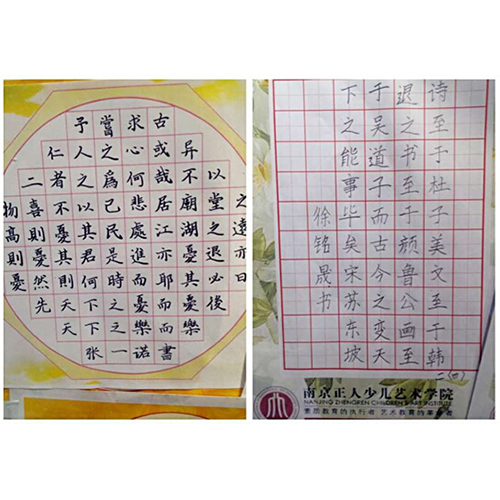 予當求古
仁人之心或异
二者之為何哉不以
物喜不以己悲居廟堂之
高則憂其民處江湖之遠
則憂其君是進亦憂退亦
憂然則何時而耶其必曰
先天下之憂而憂後
天下之樂而樂
张一诺書
诗至于杜子美文至于韩
退之书至于颜鲁公画至
于吴道子而古今之变天
下之能事毕矣宋苏东坡
徐铭晟书
二(四)
南京正人少儿艺术学院
NANJING ZHENGREN CHILDREN'S ART INSTITUTE
素质教育的执行者 艺术教育的